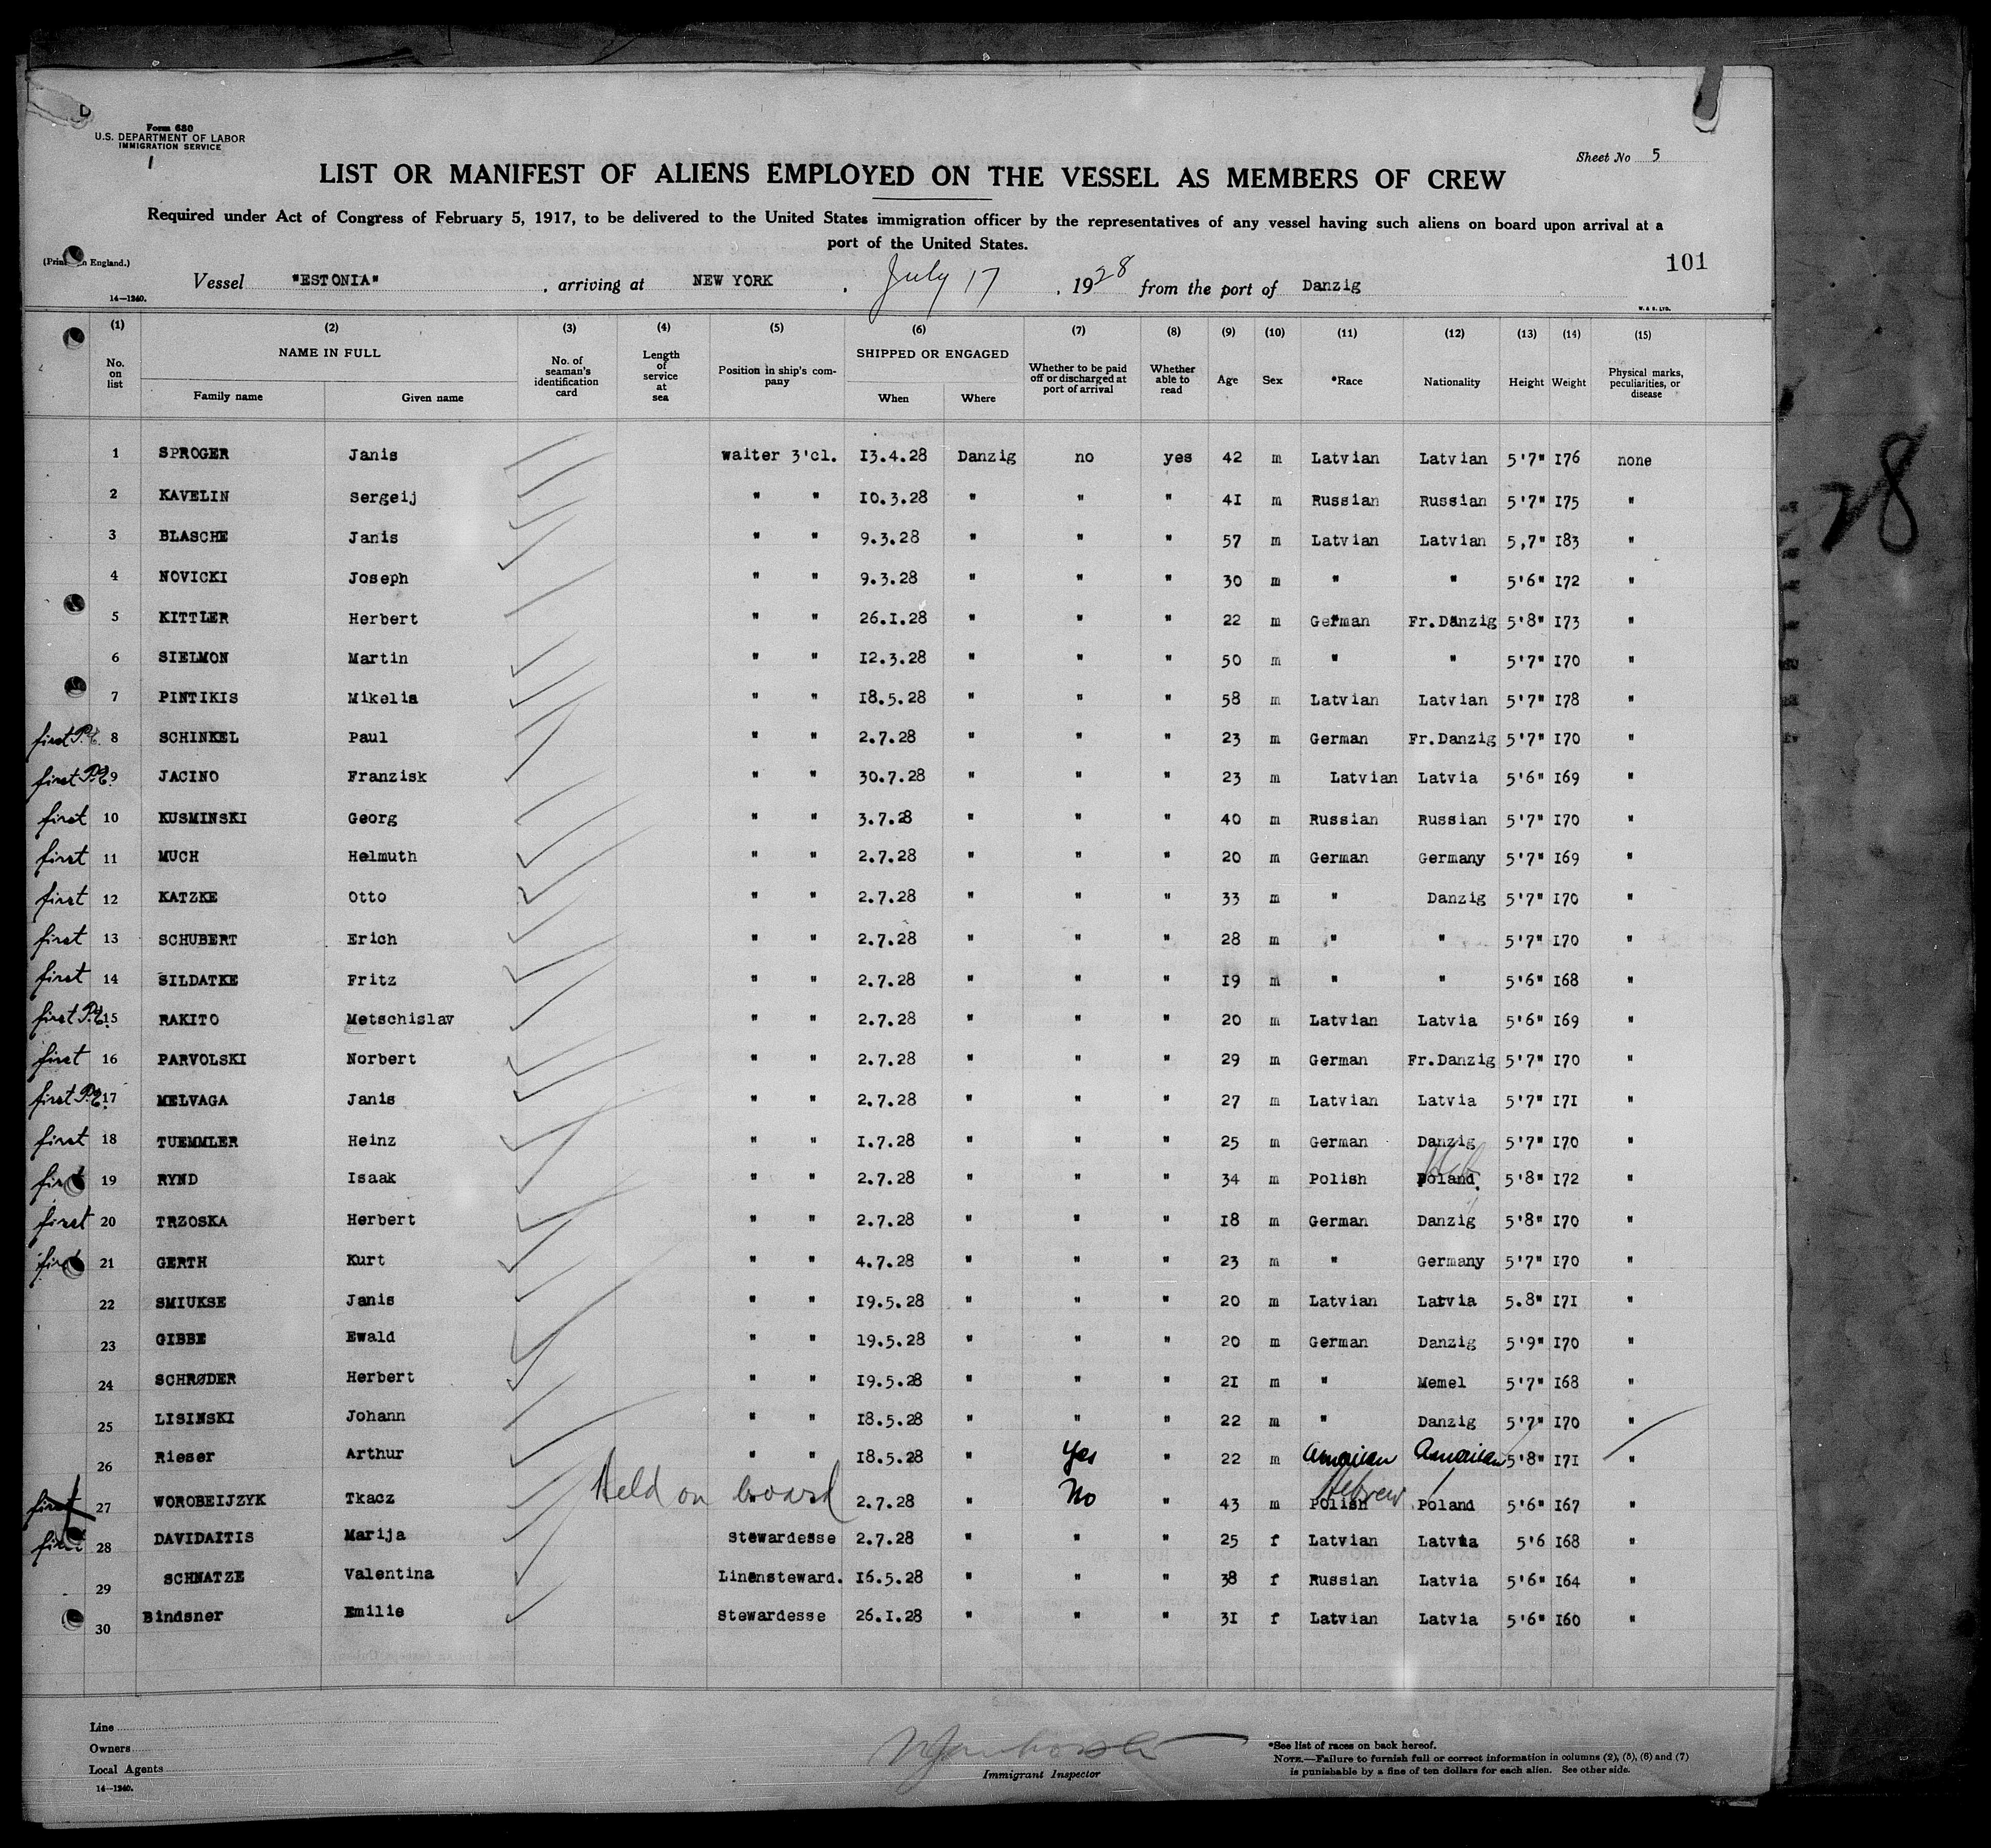 Form 680
U.S. DEPARTMENT OF LABOR
IMMIGRATION SERVICE
1
Sheet No 5
LIST OR MANIFEST OF ALIENS EMPLOYED ON THE VESSEL AS MEMBERS OF CREW
Required under Act of Congress of February 5, 1917, to be delivered to the United States immigration officer by the representatives of any vessel having such aliens on board upon arrival at a
port of the United States.
101
Vessel "ESTONIA", arriving at NEW YORK, July 17, 1928 from the port of Danzig
14—1240.
W. & S. LTD.
(1) (2) (3) (4) (5) (6) (7) (8) (9) (10) (11) (12) (13) (14) (15)
No. on list NAME IN FULL Family name Given name No. of seaman's identification card Length of service at sea Position in ship's company SHIPPED OR ENGAGED When Where Whether to be paid off or discharged at port of arrival Whether able to read Age Sex *Race Nationality Height Weight Physical marks, peculiarities, or disease
1 SPROGER Janis waiter 3'cl. I3.4.28 Danzig no yes 42 m Latvian Latvian 5'7" I76 none
2 KAVELIN Sergeij " " I0.3.28 " " " 4I m Russian Russian 5'7" I75 "
3 BLASCHE Janis " " 9.3.28 " " " 57 m Latvian Latvian 5,7" I83 "
4 NOVICKI Joseph " " 9.3.28 " " " 30 m " " 5'6" I72 "
5 KITTLER Herbert " " 26.I.28 " " " 22 m German Fr.Danzig 5'8" I73 "
6 SIELMON Martin " " I2.3.28 " " " 50 m " " 5'7" I70 "
7 PINTIKIS Mikelis " " I8.5.28 " " " 58 m Latvian Latvian 5'7" I78 "
first P.E. 8 SCHINKEL Paul " " 2.7.28 " " " 23 m German Fr.Danzig 5'7" I70 "
first P.E. 9 JACINO Franzisk " " 30.7.28 " " " 23 m Latvian Latvia 5'6" I69 "
first 10 KUSMINSKI Georg " " 3.7.28 " " " 40 m Russian Russian 5'7" I70 "
first 11 MUCH Helmuth " " 2.7.28 " " " 20 m German Germany 5'7" I69 "
first 12 KATZKE Otto " " 2.7.28 " " " 33 m " Danzig 5'7" I70 "
first 13 SCHUBERT Erich " " 2.7.28 " " " 28 m " " 5'7" I70 "
first 14 SILDATKE Fritz " " 2.7.28 " " " I9 m " " 5'6" I68 "
first P.E. 15 RAKITO Metschislav " " 2.7.28 " " " 20 m Latvian Latvia 5'6" I69 "
first 16 PARVOLSKI Norbert " " 2.7.28 " " " 29 m German Fr.Danzig 5'7" I70 "
first P.E. 17 MELVAGA Janis " " 2.7.28 " " " 27 m Latvian Latvia 5'7" I7I "
first 18 TUEMMLER Heinz " " I.7.28 " " " 25 m German Danzig 5'7" I70 "
first 19 RYND Isaak " " 2.7.28 " " " 34 m Polish Heb Poland. 5'8" I72 "
first 20 TRZOSKA Herbert " " 2.7.28 " " " I8 m German Danzig 5'8" I70 "
first 21 GERTH Kurt " " 4.7.28 " " " 23 m " Germany 5'7" I70 "
22 SMIUKSE Janis " " I9.5.28 " " " 20 m Latvian Latvia 5.8" I7I "
23 GIBBE Ewald " " 19.5.28 " " " 20 m German Danzig 5'9" I70 "
24 SCHRØDER Herbert " " I9.5.28 " " " 2I m " Memel 5'7" I68 "
25 LISINSKI Johann " " I8.5.28 " " " 22 m " Danzig 5'7" I70 "
26 Rieser Arthur " " I8.5.28 " Yes " 22 m American American 5'8" I7I "
first 27 WOROBEIJZYK Tkacz Held on board 2.7.28 " No " 43 m Polish Hebrew Poland 5'6" I67 "
first 28 DAVIDAITIS Marija Stewardesse 2.7.28 " " " 25 f Latvian Latvia 5'6 I68 "
29 SCHNATZE Valentina Linensteward. I6.5.28 " " " 38 f Russian Latvia 5'6" I64 "
30 Bindsner Emilie Stewardesse 26.I.28 " " " 3I f Latvian Latvia 5'6" I60 "
28
Line
Owners
Local Agents
14—1240.
Immigrant Inspector
*See list of races on back hereof.
NOTE.—Failure to furnish full or correct information in columns (2), (5), (6) and (7)
is punishable by a fine of ten dollars for each alien. See other side.